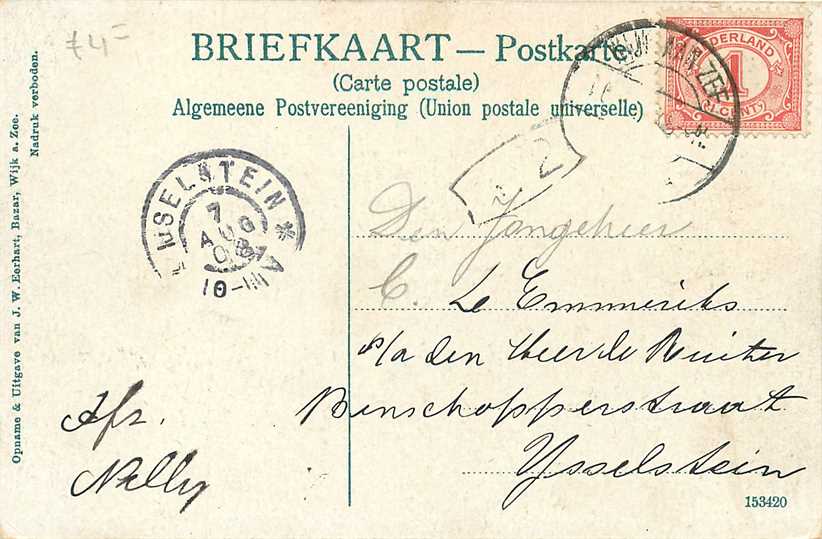 f4-
BRIEFKAART — Postkarte
(Carte postale)
Algemeene Postvereeniging (Union postale universelle)
NEDERLAND
1
1 CENT
WIJK AAN ZEE
IJSSELSTEIN
7
AUG
08
10-
2
Den Jongeheer
C. Le Emmeriks
p/a den Heer de Ruiter
Benschopperstraat
Ysselstein
Afz.
Nelly
153420
Opname & Uitgave van J. W. Eerhart, Bazar, Wijk a. Zee.
Nadruk verboden.